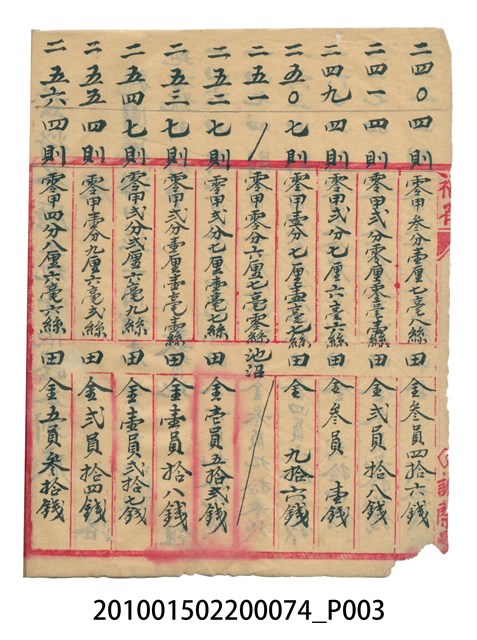 二四〇 四則 零甲叁分壹厘七毫八絲 田 金叁員四拾六錢
二四一 四則 零甲弍分零厘零毫壹絲 田 金弍員拾八錢
二四九 四則 零甲弍分七厘六毫六絲 田 金叁員拾壹錢
二五〇 七則 零甲壹分七厘壹毫七絲 田 金九拾六錢
二五一 零甲零分六厘七毫零絲 池沼
二五二 七則 零甲弍分七厘壹毫七絲 田 金壱員五拾弍錢
二五三 七則 零甲弍分壹厘壹毫壹絲 田 金壹員拾八錢
二五四 七則 零甲弍分弍厘六毫九絲 田 金壹員弍拾七錢
二五五 四則 零甲壹分九厘六毫弍絲 田 金弍員拾四錢
二五六 四則 零甲四分八厘六毫六絲 田 金五員叁拾錢
201001502200074_P003